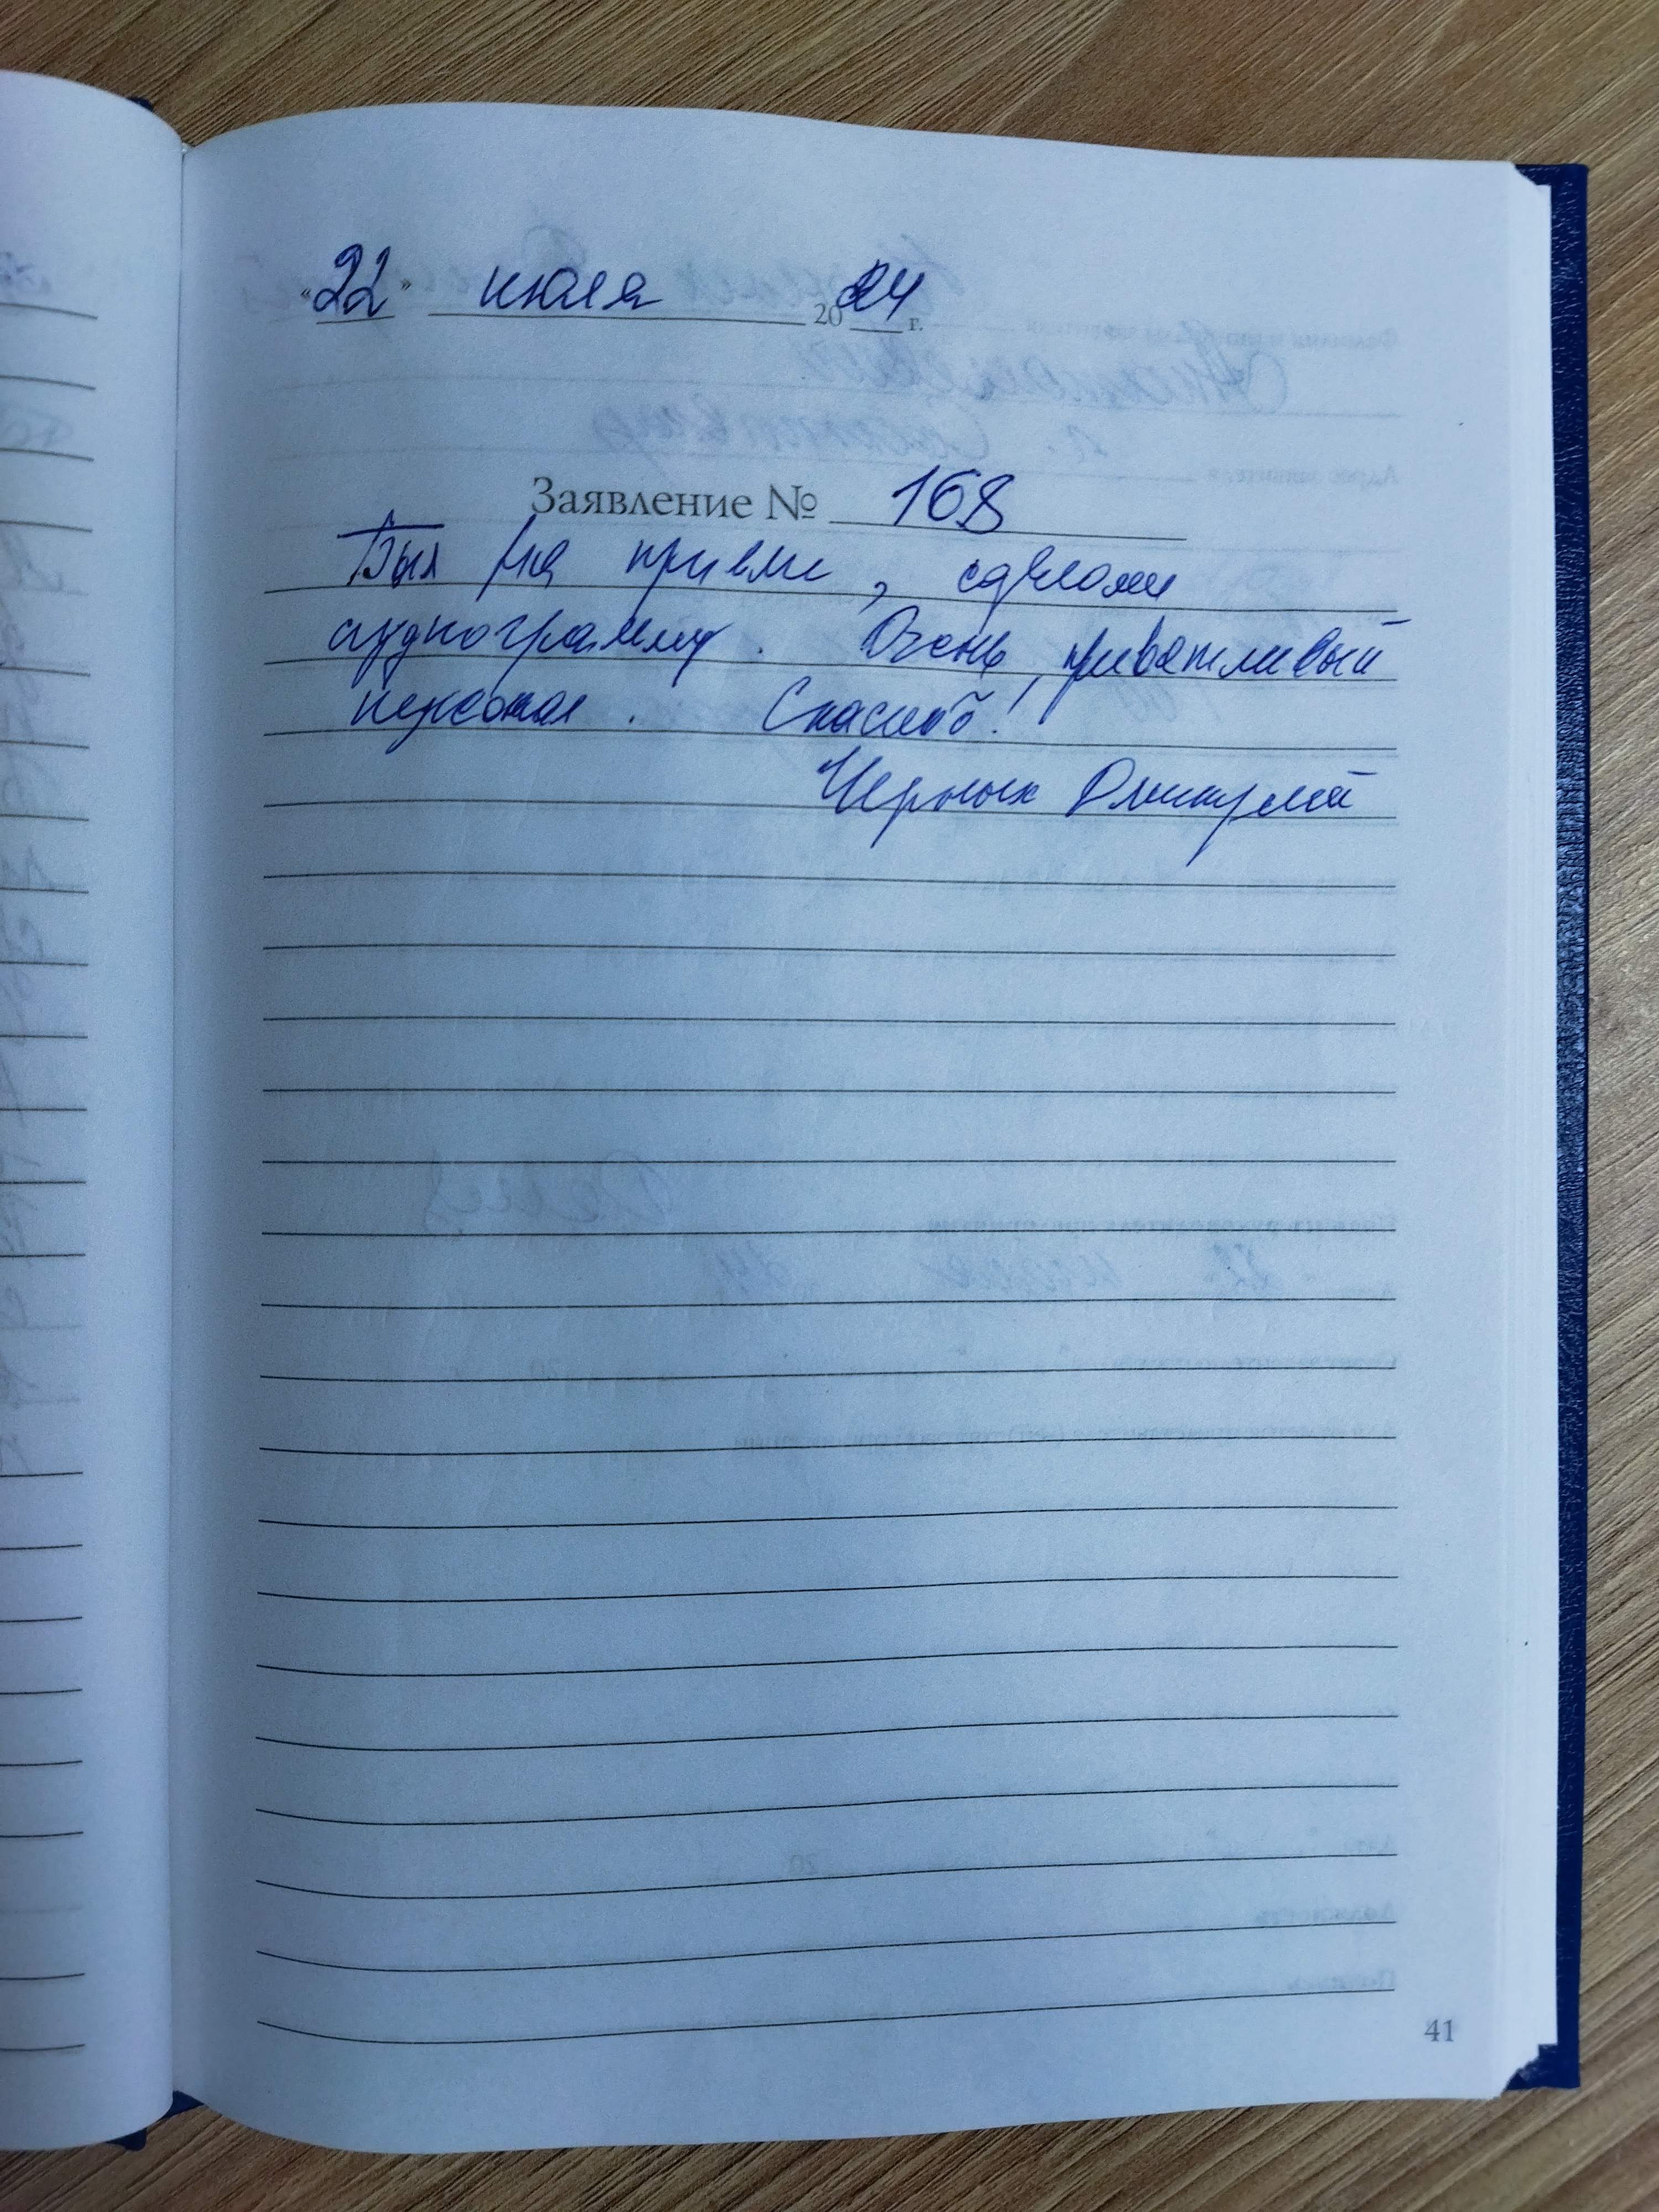 "22" июля 2024 г.
Заявление № 168
Был на приеме, сделали
аудиограмму. Очень приветливый
персонал. Спасибо!
Черных Дмитрий
41